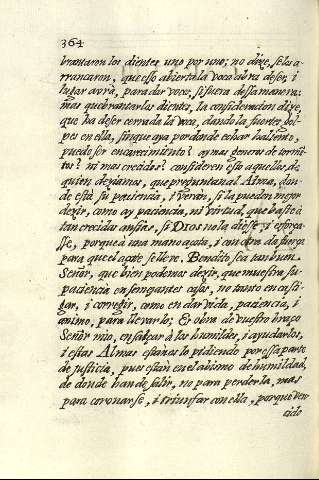 364
brantaron los dientes uno por uno; no dixe, se los a-
rrancaron, que esso abierta la voca abra de ser, i
lugar avrà, para dar voces, si fuera dessa manera:
mas quebrantarlos dientes, la consideracion dixe,
que ha de ser cerrada la voca, dando la fuertes gol-
pes en ella, sin que aya por donde echar haliento,
puede ser encarecimiento? ay mas generos de tormẽ-
tos? ni mas crecidos? consideren esto aquellos, de
quien deziamos, que preguntan al Alma, don-
de està su paciencia, i veran, si la pueden mejor
dezir, como ay paciencia, ni virtud, que baste à
tan crecidas ansias, si Dios no la diesse, i esforça-
sse, porque à una mano açota, i con otra da fuerça
para que el açote se lleve. Bendito sea tan buen
Señor, que bien podemos dezir, que muestra su
paciencia en semejantes casos, no tanto en casti-
gar, i corregir, como en dar vida, paciencia, i
animo, para llevarlo; Es obra de vuestro braço
Señor mio, ensalçar à los humildes, i ayudarlos,
i estas Almas estànos lo pidiendo por essa parte
de justicia, pues estàn en el abismo de humildad,
de donde han de salir, no para perderla, mas
para coronarse, i triunfar con ella, porque ven-
cido